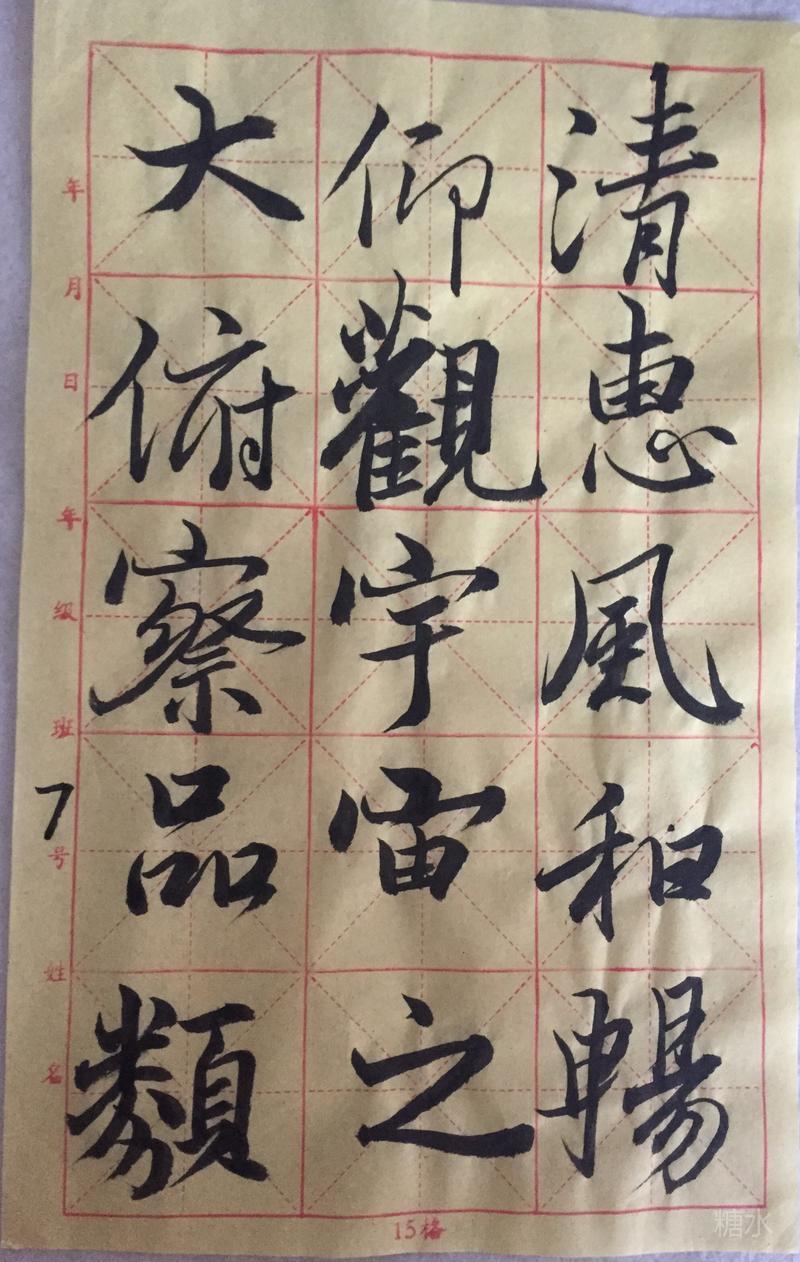 清惠風和暢
仰觀宇宙之
大俯察品類
年月日年级班7号姓名
15格
糖水